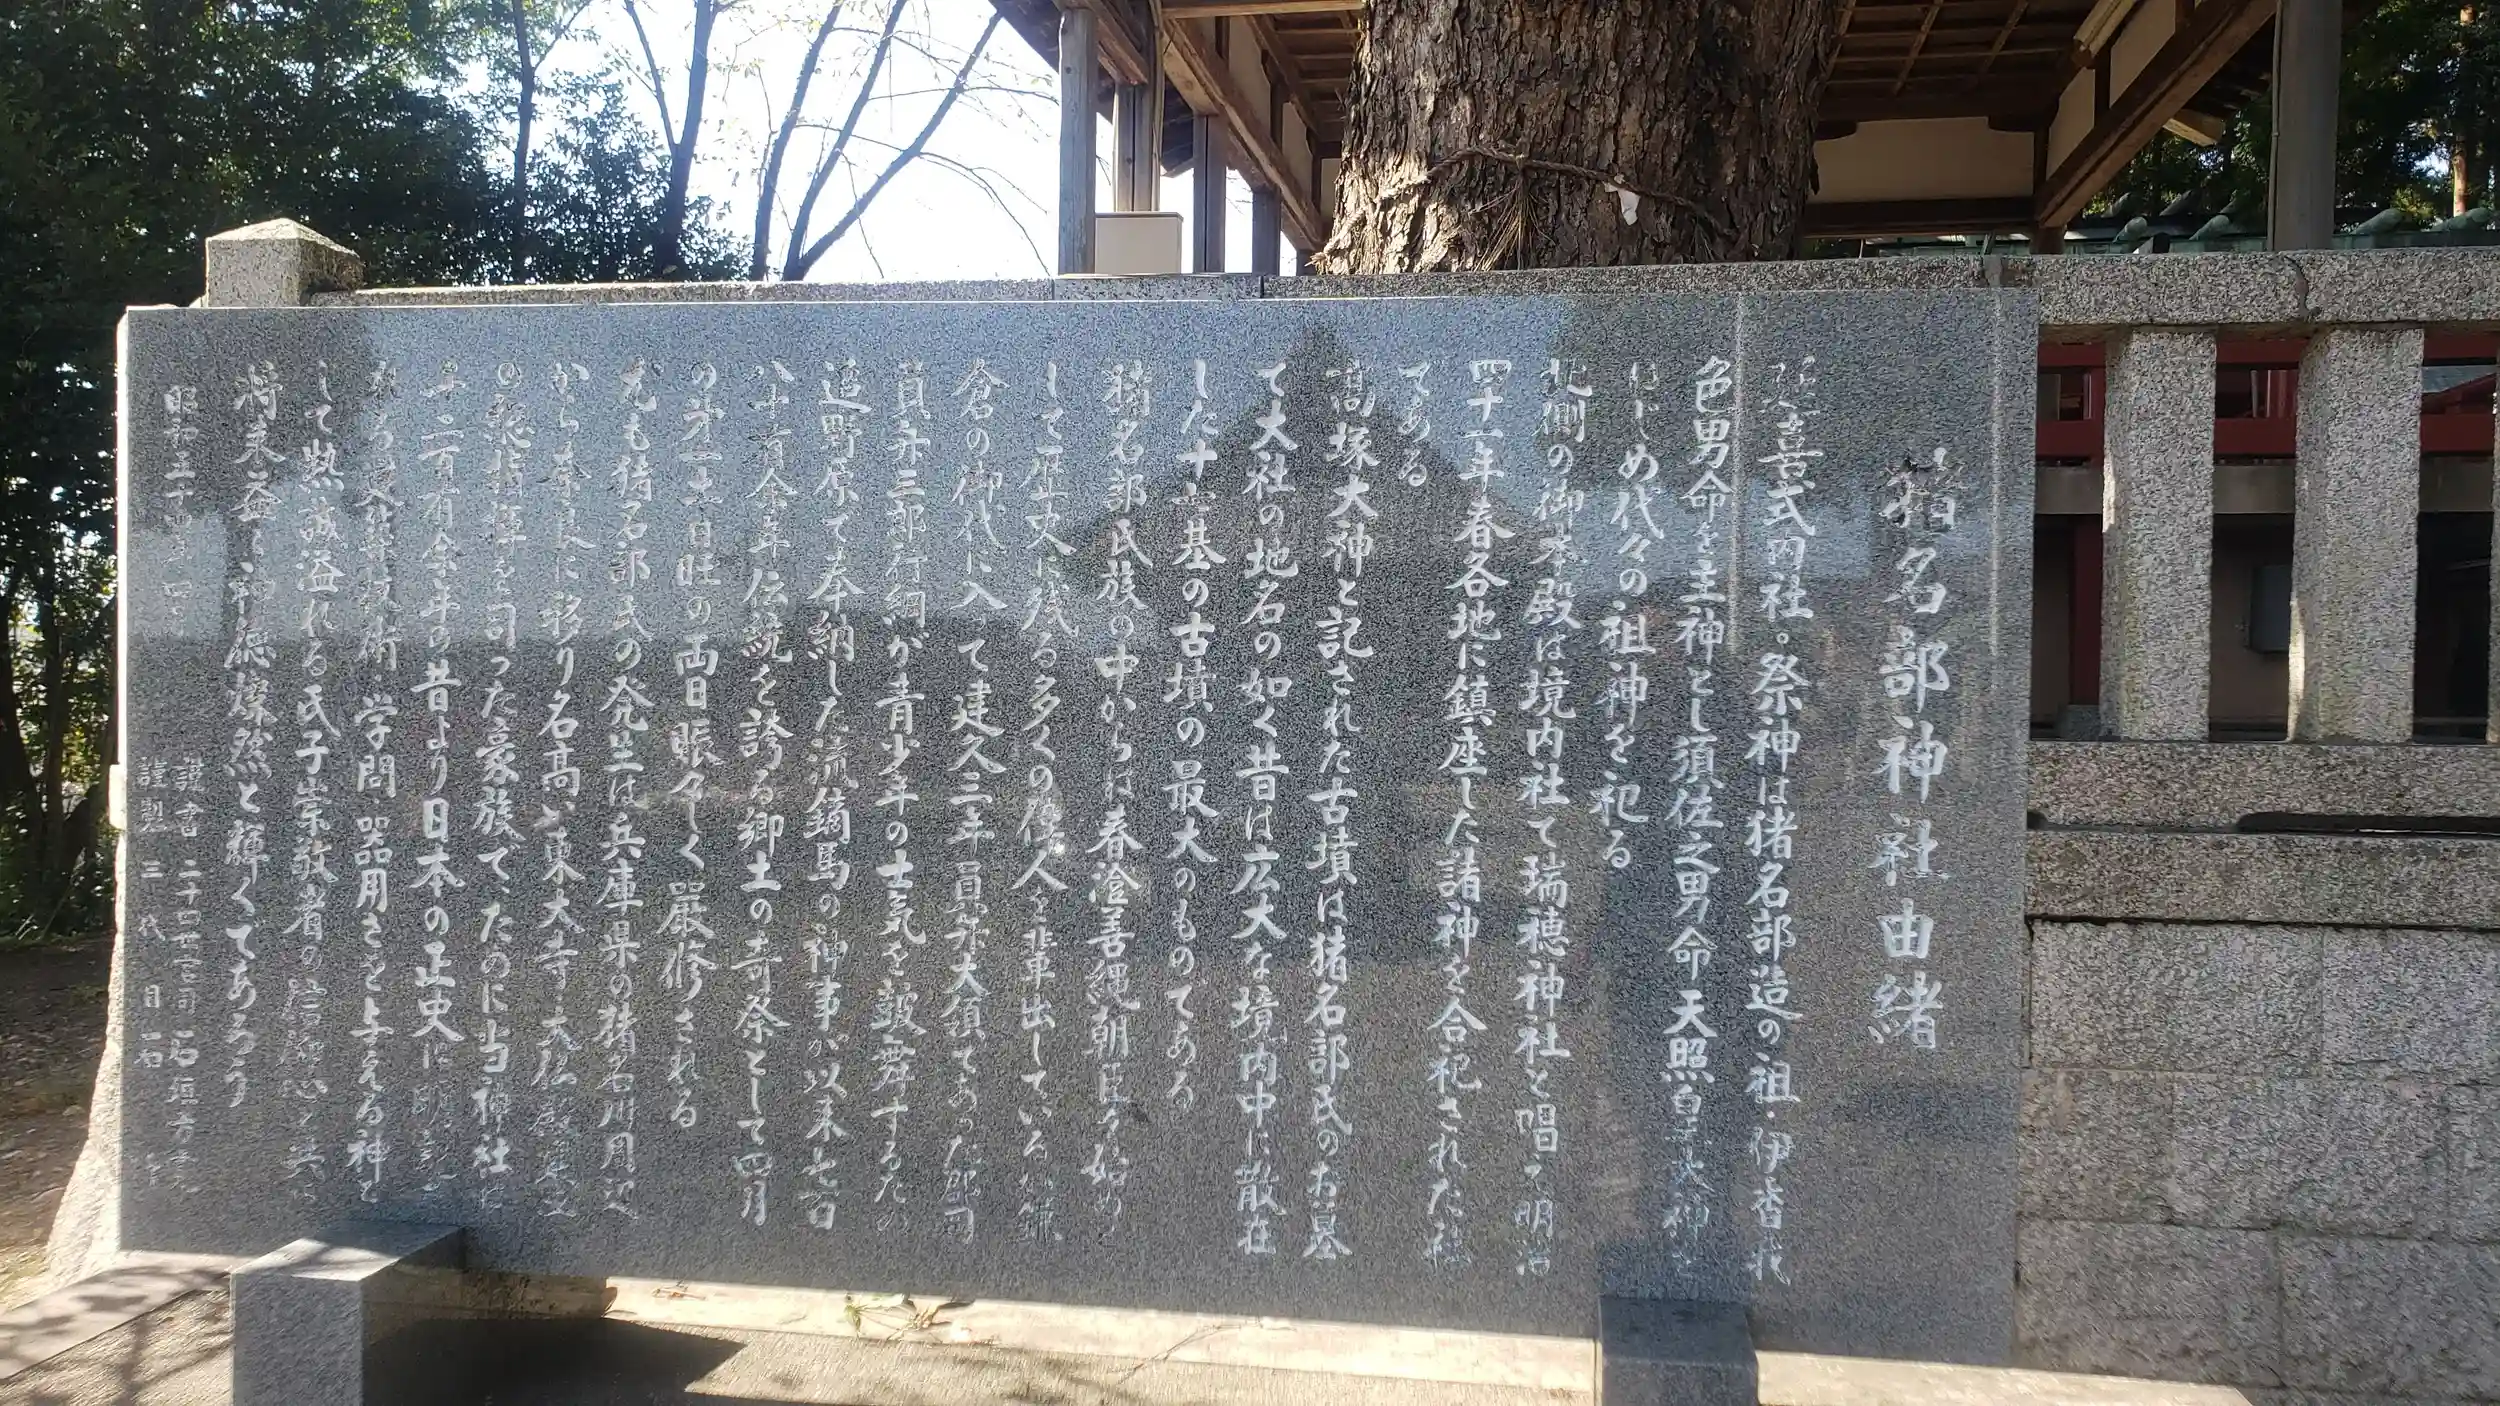 猪名部神社由緒
延喜式内社。祭神は猪名部造の祖・伊香我
色男命を主神とし須佐之男命天照皇大神を
はじめ代々の祖神を祀る
北側の御本殿は境内社で瑞穂神社と唱え明治
四十一年春各地に鎮座した諸神を合祀された社
である
高塚大神と記された古墳は猪名部氏のお墓
で大社の地名の如く昔は広大な境内中に散在
した十七基の古墳の最大のものである
猪名部氏族の中からは春澄善縄朝臣を始め
して歴史に残る多くの偉人を輩出しているが鎌
倉の御代に入って建久三年員弁大領であった郡司
員弁三郎行綱が青少年の士気を鼓舞するため
追野原で奉納した流鏑馬の神事が以来七百
八十有余年伝統を誇る郷土の奇祭として四月
の第一土・日旺の両日賑々しく厳修される
尤も猪名部氏の発生は兵庫県の猪名川周辺
から奈良に移り名高い東大寺・大仏殿建立
の総指揮を司った豪族でったのに当神社は
千二百有余年の昔より日本の正史に明記
される 技術・学問・器用さを与える神と
して熱誠溢れる氏子崇敬者の信仰心と共に
将来益々神徳燦然と輝くであろう
昭和五十四年四月
謹書 二十四世宮司 石垣
謹製 三代 目 石